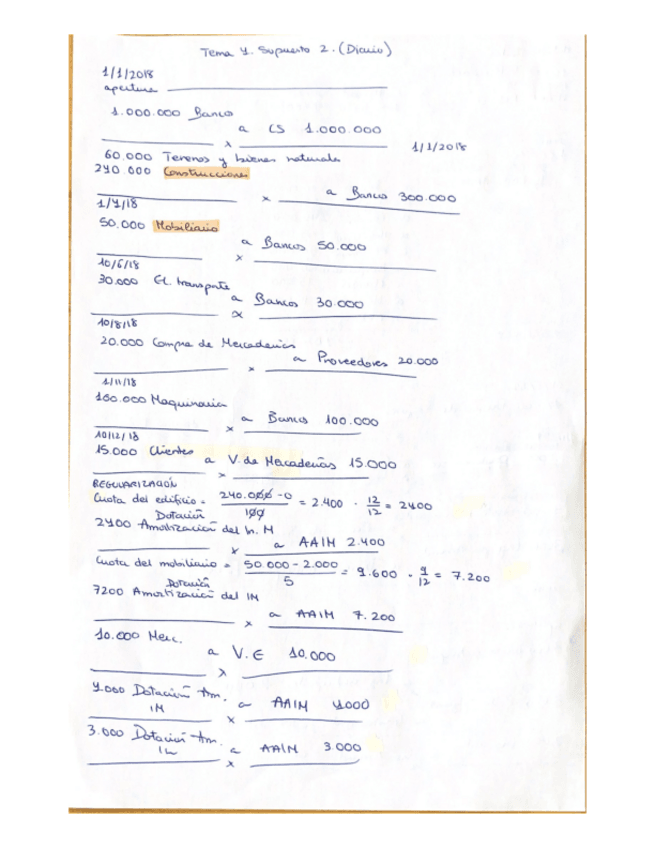 Tema 4. Supuesto 2. (Diario)
1/1/2018
apertura
1.000.000 Banco
a CS 1.000.000
x
1/1/2018
60.000 Terrenos y bienes naturales
240.000 Construcciones
a Banco 300.000
x
1/4/18
50.000 Mobiliario
a Bancos 50.000
x
10/6/18
30.000 El. transporte
a Bancos 30.000
x
10/8/18
20.000 Compra de Mercaderías
a Proveedores 20.000
x
1/11/18
100.000 Maquinaria
a Banco 100.000
x
10/12/18
15.000 Clientes a V. de Mercaderías 15.000
x
REGULARIZACIÓN
Cuota del edificio = 240.000 - 0 / 100 = 2.400 · 12/12 = 2400
Dotación
2400 Amortización del In. M
a AAIM 2.400
x
Cuota del mobiliario = 50 000 - 2.000 / 5 = 9.600 · 9/12 = 7.200
Dotación
7200 Amortización del IM
a AAIM 7.200
x
10.000 Merc.
a V. E 10,000
x
4.000 Dotación Am. IM a AAIM 4000
x
3.000 Dotación Am. a AAIM 3.000
x